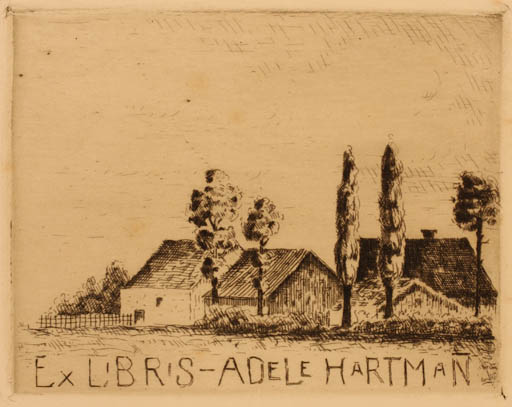 EX LIBRIS - ADELE HARTMAN̄